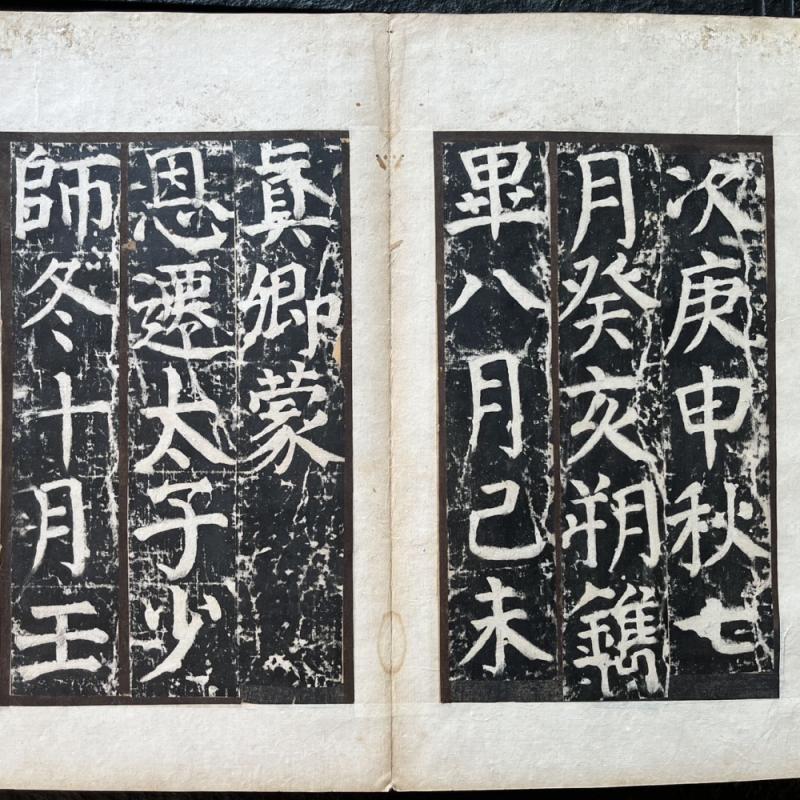 次庚申秋七
月癸亥朔鐫
畢八月己未
真卿蒙
恩遷太子少
師冬十月壬